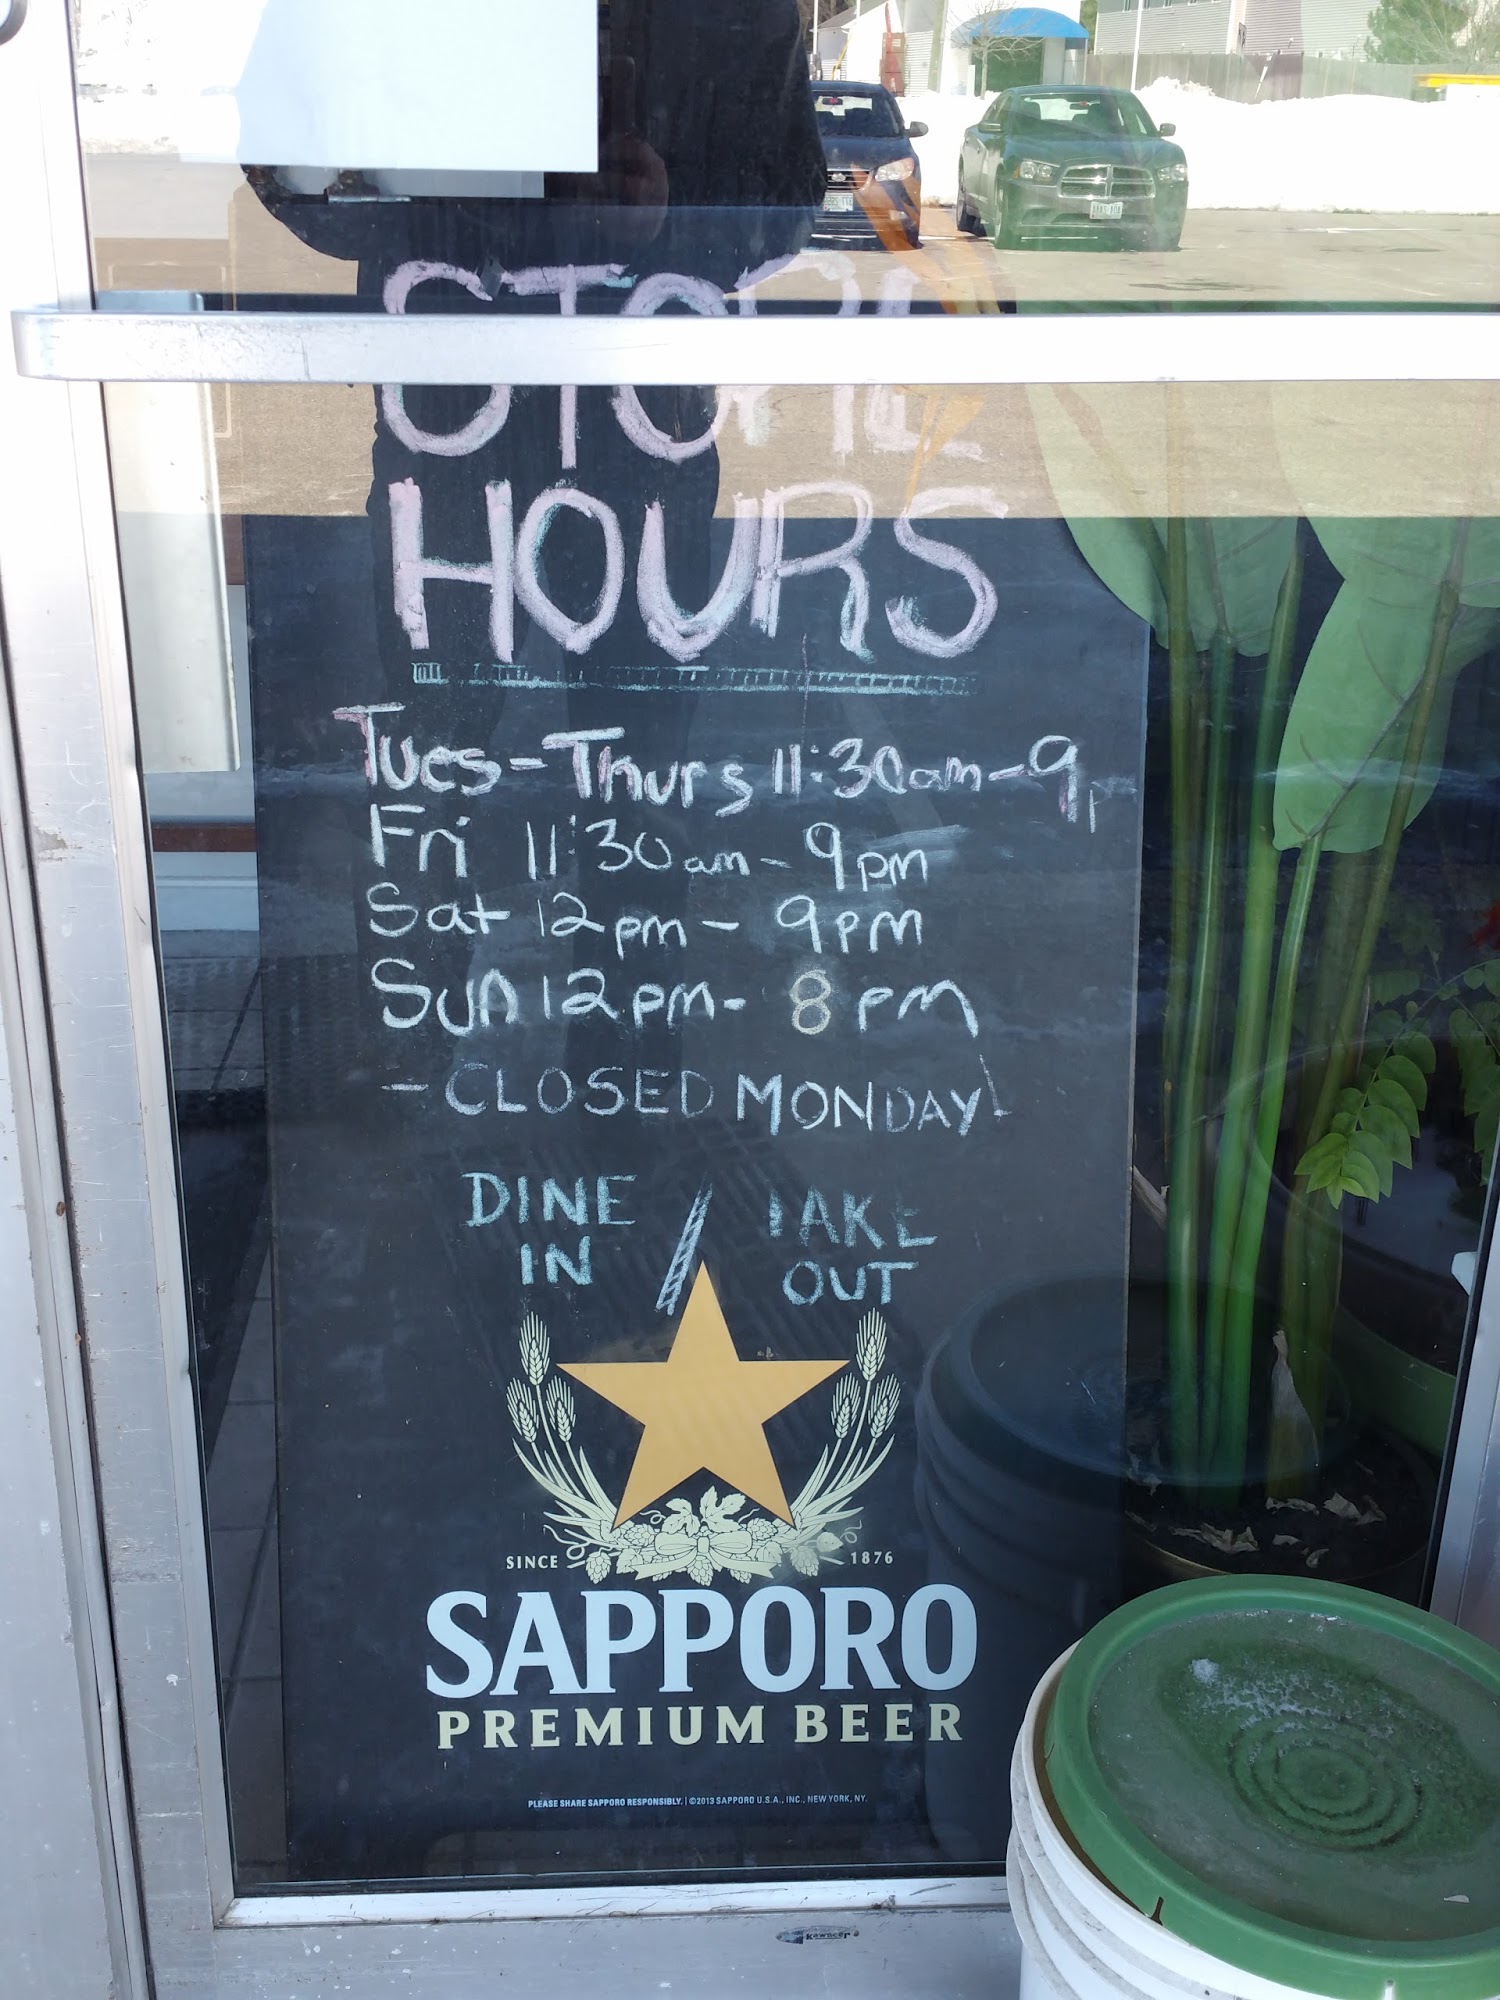 STORE
HOURS
Tues-Thurs 11:30am-9p
Fri 11:30am-9pm
Sat 12pm-9pm
Sun 12pm-8pm
-CLOSED MONDAY!
DINE IN / TAKE OUT
SINCE 1876
SAPPORO
PREMIUM BEER
PLEASE SHARE SAPPORO RESPONSIBLY. | ©2013 SAPPORO U.S.A., INC., NEW YORK, NY.
Kawneer